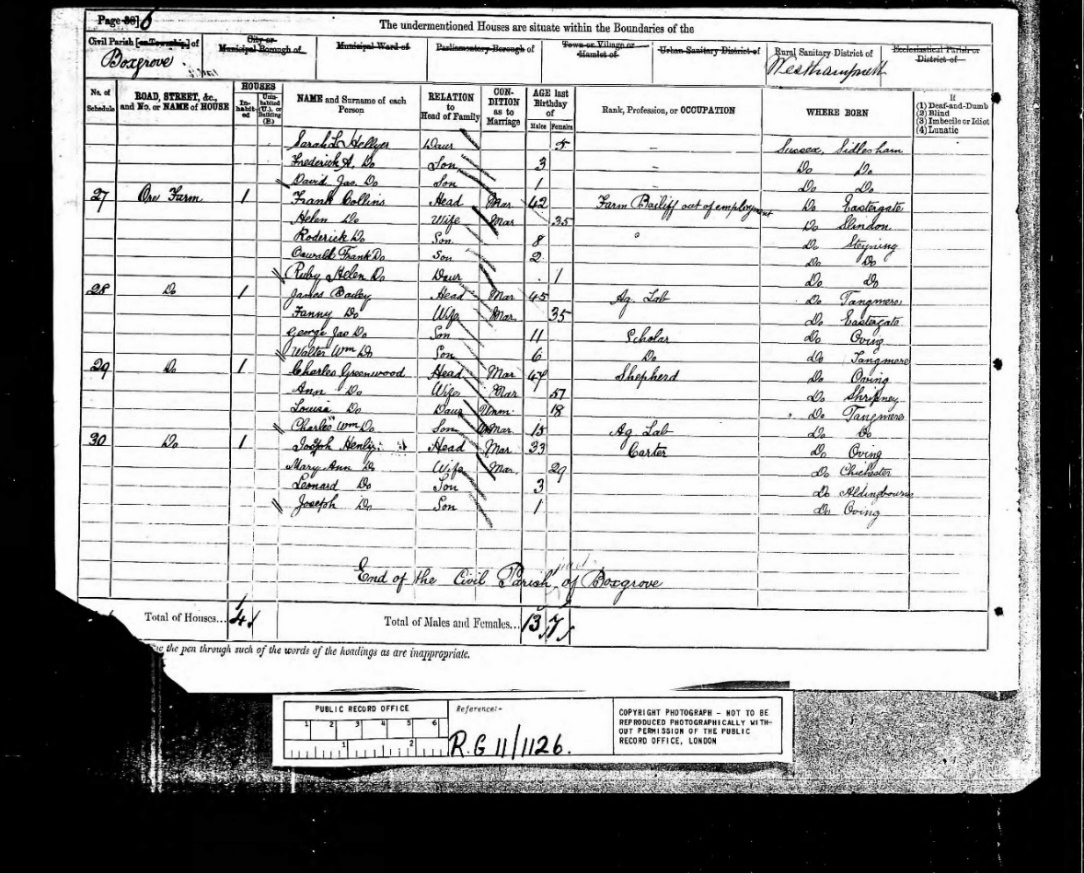 Page 6
The undermentioned Houses are situate within the Boundaries of the
Civil Parish [or Township] of Boxgrove
City or Municipal Borough of
Municipal Ward of
Parliamentary Borough of
Town or Village or Hamlet of
Urban Sanitary District of
Rural Sanitary District of Westhampnett
Ecclesiastical Parish or District of
No. of Schedule
ROAD, STREET, &c., and No. or NAME of HOUSE
HOUSES
In-habit-ed
Uninhabited (U.), or Building (B.)
NAME and Surname of each Person
RELATION to Head of Family
CON-DITION as to Marriage
AGE last Birthday of
Males Females
Rank, Profession, or OCCUPATION
WHERE BORN
If
(1) Deaf-and-Dumb
(2) Blind
(3) Imbecile or Idiot
(4) Lunatic
Sarah L Hellyer Daur 5 Sussex, Sidlesham
Frederick A. Do Son 3 Do Do
David Jas. Do Son 1 Do Do
27 Ore Farm 1 Frank Collins Head Mar 42 Farm Bailiff out of employment Do Eastergate
Helen Do Wife Mar 35 Do Slindon
Roderick Do Son 8 Do Steyning
Oswald Frank Do Son 2 Do Do
Ruby Helen Do Daur 1 Do Do
28 Do 1 James Bailey Head Mar 45 Ag. Lab Do Tangmere
Fanny Do Wife Mar 35 Do Eastergate
George Jas Do Son 11 Scholar Do Oving
Walter Wm Do Son 6 Do Do Tangmere
29 Do 1 Charles Greenwood Head Mar 47 Shepherd Do Oving
Ann Do Wife Mar 51 Do Shripney
Louisa Do Daur Unm 18 Do Tangmere
Charles Wm Do Son 15 Ag Lab Do Do
30 Do 1 Joseph Henly Head Mar 33 Carter Do Oving
Mary Ann Do Wife Mar 29 Do Chichester
Leonard Do Son 3 Do Aldingbourne
Joseph Do Son 1 Do Oving
End of the Civil Parish of Boxgrove
Total of Houses... 4 Total of Males and Females... 13 7
the pen through such of the words of the headings as are inappropriate.
PUBLIC RECORD OFFICE
1 2 3 4 5 6
1 2
Reference:-
R.G 11/1126.
COPYRIGHT PHOTOGRAPH - NOT TO BE
REPRODUCED PHOTOGRAPHICALLY WITH-
OUT PERMISSION OF THE PUBLIC
RECORD OFFICE, LONDON